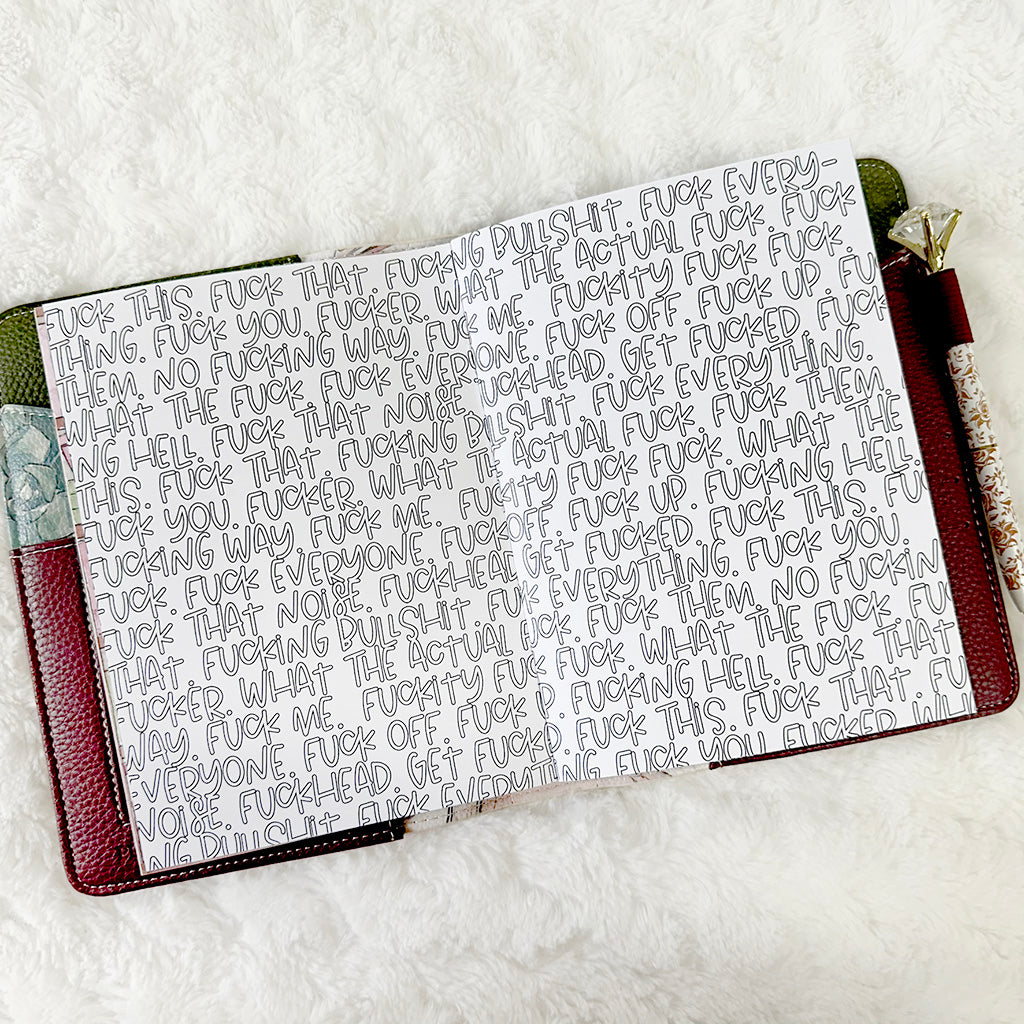 FUCK THIS. FUCK THAT. FUCKING BULLSHIT. FUCK EVERY-
THING. FUCK YOU. FUCKER. WHAT THE ACTUAL FUCK. FUCK
THEM. NO FUCKING WAY. FUCK ME. FUCKITY FUCK FUCK.
WHAT THE FUCK. FUCK EVERYONE. FUCK OFF. FUCK UP. FU
NG HELL. FUCK THAT NOISE. FUCKHEAD. GET FUCKED. FUCK
THIS. FUCK THAT. FUCKING BULLSHIT. FUCK EVERYTHING.
FUCK YOU. FUCKER. WHAT THE ACTUAL FUCK. FUCK THEM.
FUCKING WAY. FUCK ME. FUCKITY FUCK FUCK. WHAT THE
FUCK. FUCK EVERYONE. FUCK OFF. FUCK UP. FUCKING HELL.
FUCK THAT NOISE. FUCKHEAD. GET FUCKED. FUCK THIS. FU
THAT. FUCKING BULLSHIT. FUCK EVERYTHING. FUCK YOU.
FUCKER. WHAT THE ACTUAL FUCK. FUCK THEM. NO FUCKIN
WAY. FUCK ME. FUCKITY FUCK FUCK. WHAT THE FUCK. FU
EVERYONE. FUCK OFF. FUCK UP. FUCKING HELL. FUCK THAT
NOISE. FUCKHEAD. GET FUCKED. FUCK THIS. FUCK THAT. FU
NG BULLSHIT. FUCK EVERYTHING FUCK YOU FUCKER WH